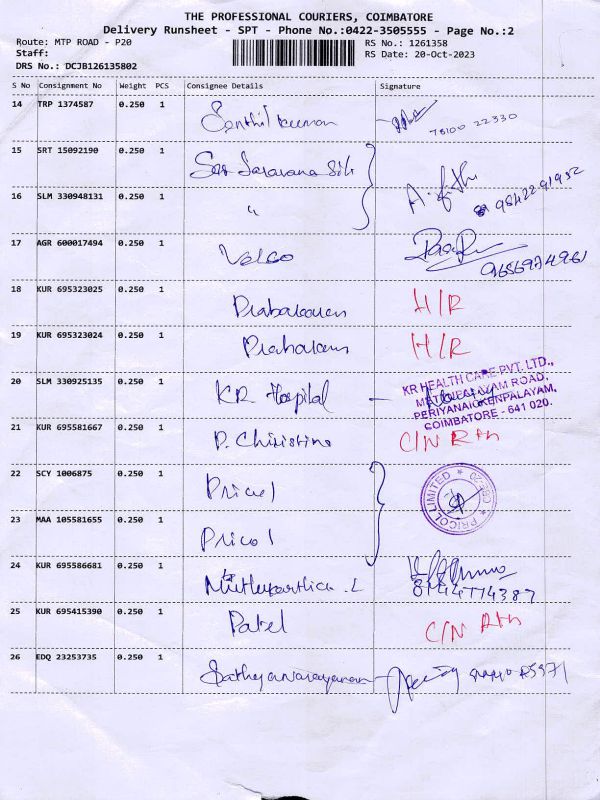 THE PROFESSIONAL COURIERS, COIMBATORE
Delivery Runsheet - SPT - Phone No.:0422-3505555 - Page No.:2
Route: MTP ROAD - P20
RS No.: 1261358
Staff:
RS Date: 20-Oct-2023
DRS No.: DCJB126135802
S No Consignment No Weight PCS Consignee Details Signature
14 TRP 1374587 0.250 1 Senthil kumar 78100 22330
15 SRT 15092190 0.250 1 Saravana
16 SLM 330948131 0.250 1 " 9842291952
17 AGR 600017494 0.250 1 Velco
18 KUR 695323025 0.250 1 Prabakaran H/R
19 KUR 695323024 0.250 1 Prabakaran H/R
20 SLM 330925135 0.250 1 K.R. Hospital
KR HEALTH CARE PVT. LTD.,
METTUPALAYAM ROAD,
PERIYANAICKENPALAYAM,
COIMBATORE - 641 020.
21 KUR 695581667 0.250 1 P. Christina C/N Rtn
22 SCY 1006875 0.250 1 Pricol
PRICOL LIMITED
23 MAA 105581655 0.250 1 Pricol
24 KUR 695586681 0.250 1 Muthukarthick. L 8144774387
25 KUR 695415390 0.250 1 Patel C/N Rtn
26 EDQ 23253735 0.250 1 Sathyanarayanan